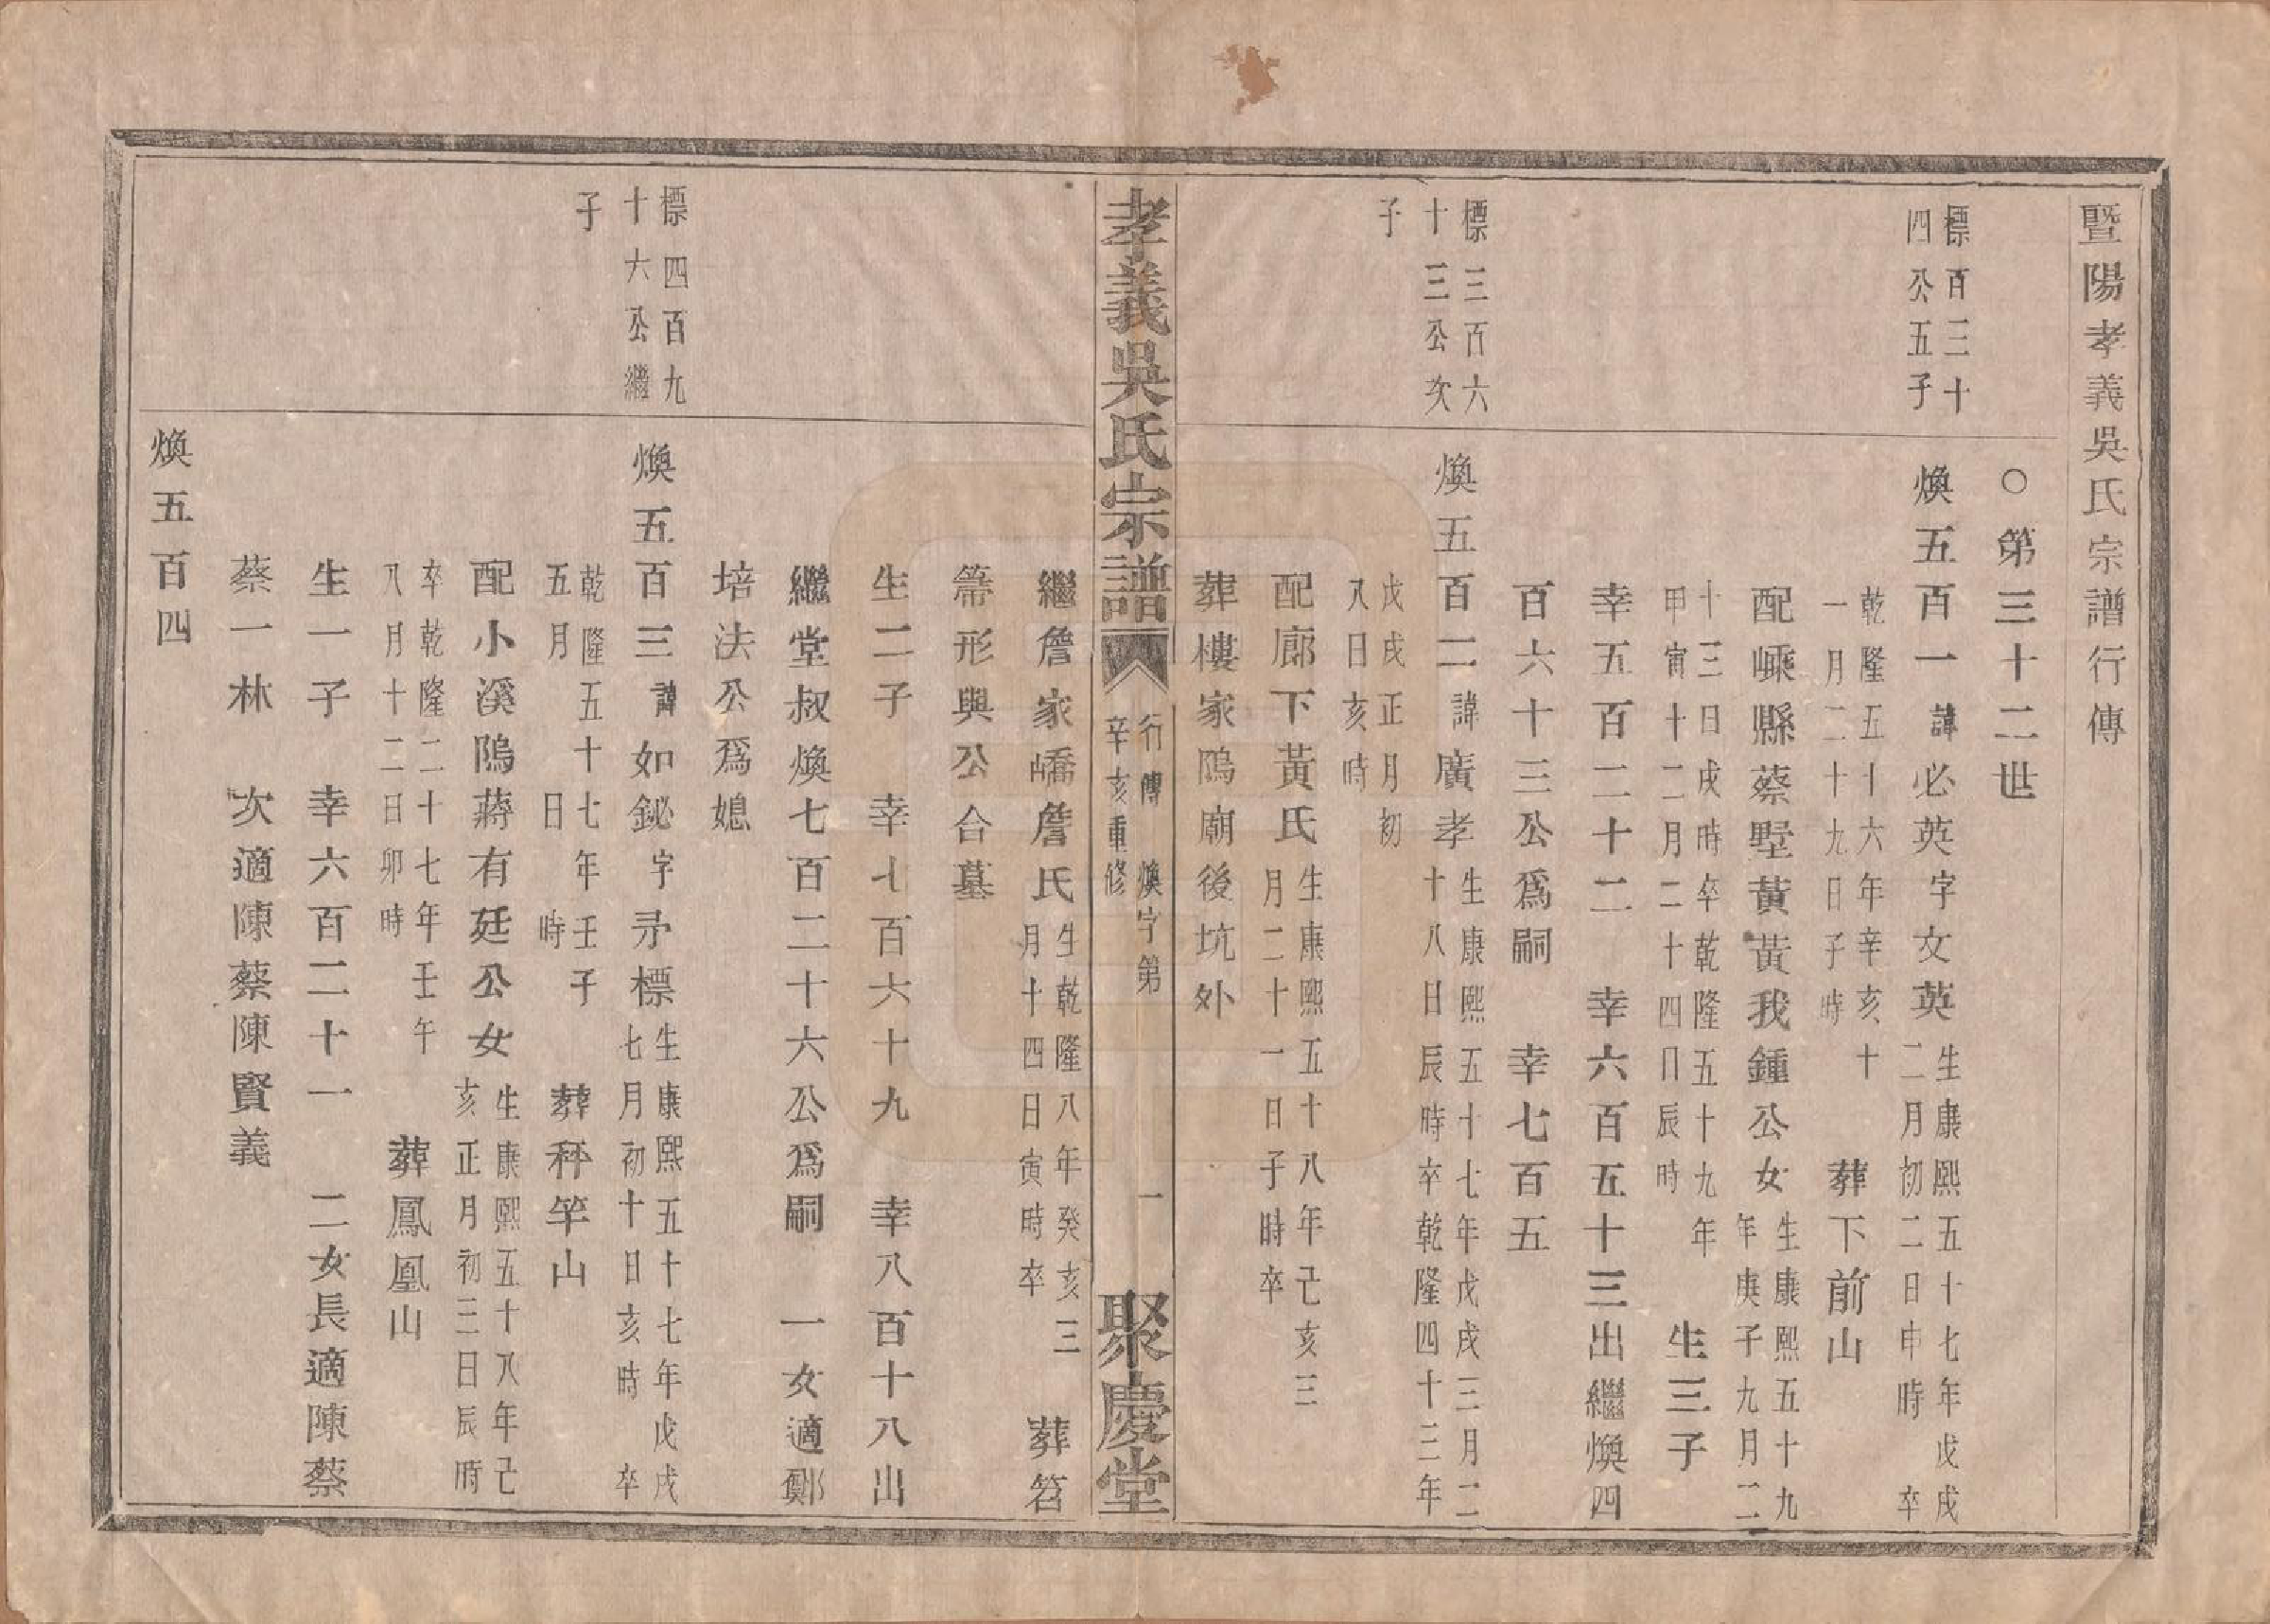 暨陽孝義吳氏宗譜行傳
○第三十二世
標百三十
四公五子
煥五百一諱必英字文英
生康熙五十七年戊戌
二月初二日申時卒
乾隆五十六年辛亥十
一月二十九日子時
葬下前山
配嵊縣蔡墅黃黃我鍾公女
生康熙五十九
年庚子九月二
十三日戌時卒乾隆五十九年
甲寅十二月二十四日辰時
生三子
幸五百二十二 幸六百五十三出繼煥四
百六十三公爲嗣 幸七百五
標三百六
十三公次
子
煥五百二諱廣孝
生康熙五十七年戊戌三月二
十八日辰時卒乾隆四十三年
戊戌正月初
八日亥時
配廊下黃氏
生康熙五十八年己亥三
月二十一日子時卒
葬樓家隖廟後坑外
孝義吳氏宗譜
行傳 煥字第
辛亥重修
一
聚慶堂
繼詹家嶠詹氏
生乾隆八年癸亥三
月十四日寅時卒
葬笤
箒形與公合墓
生二子 幸七百六十九 幸八百十八出
繼堂叔煥七百二十六公爲嗣 一女適鄭
培法公爲媳
標四百九
十六公繼
子
煥五百三諱如鉍字矛標
生康熙五十七年戊戌
七月初十日亥時卒
乾隆五十七年壬子
五月 日 時
葬秤竿山
配小溪隖蔣有廷公女
生康熙五十八年己
亥正月初三日辰時
卒乾隆二十七年壬午
八月十二日卯時
葬鳳凰山
生一子 幸六百二十一 二女長適陳蔡
蔡一林 次適陳蔡陳賢義
煥五百四